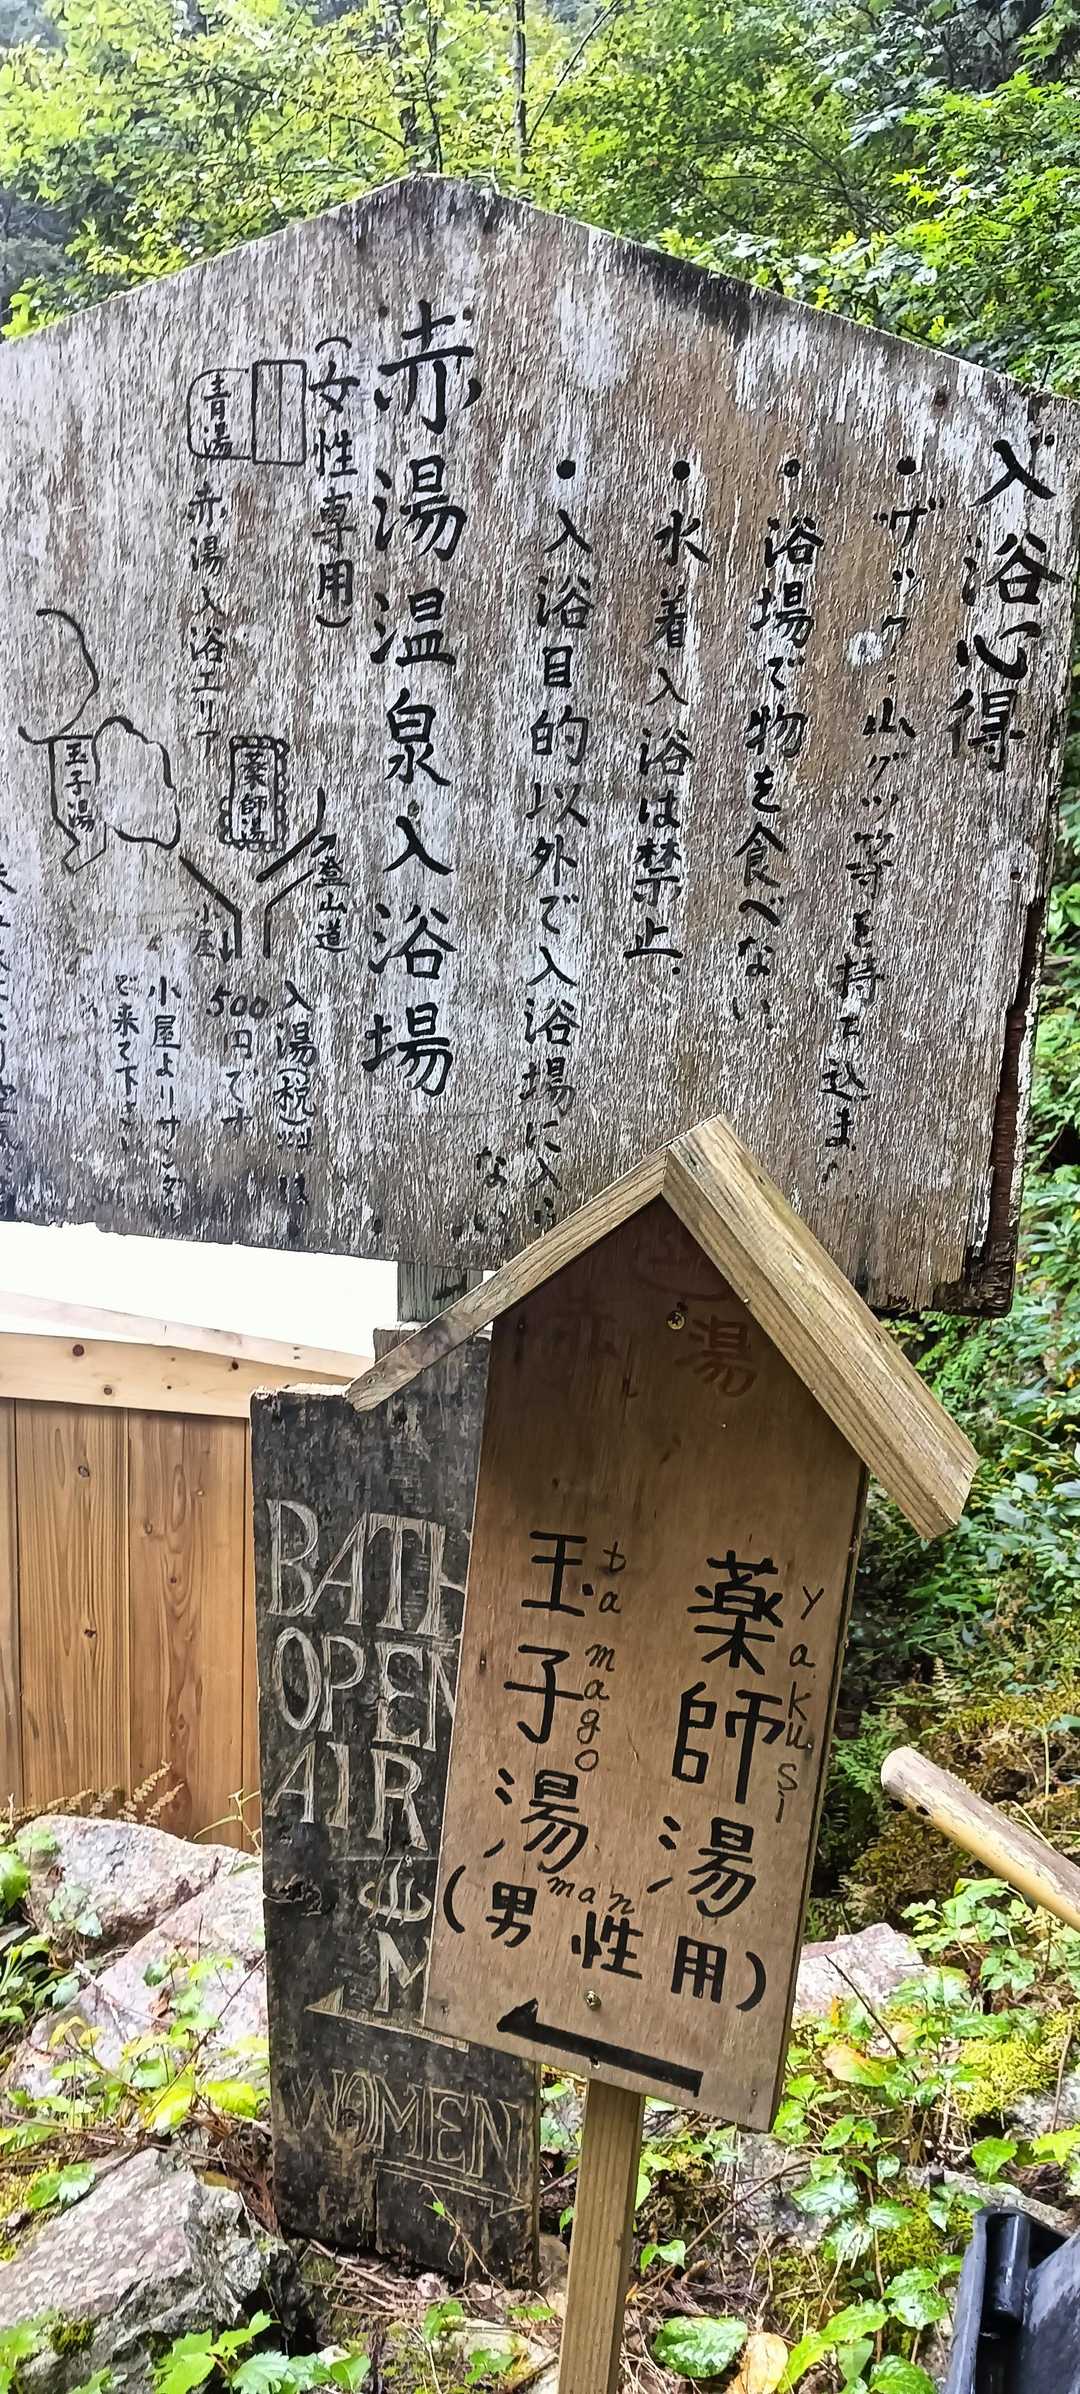 入浴心得
・ザック・山グツ等を持ち込ま
・浴場で物を食べない
・水着入浴は禁止
・入浴目的以外で入浴場に入ら
ない
赤湯温泉入浴場
(女性専用)
青湯
赤湯入浴エリア
薬師湯
玉子湯
登山道
小屋
入湯(税)料は
500円です
小屋よりサンダル
で来て下さい
湯
薬師湯
yakusi
玉子湯
tamago
(男性用)
man
BATH
OPEN
AIR
M
WOMEN